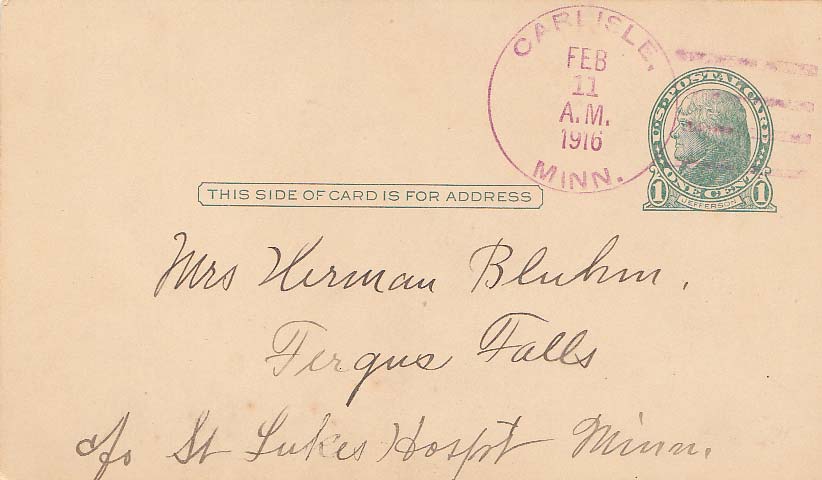 CARLISLE,
FEB
11
A.M.
1916
MINN.
U.S. POSTAL CARD
1 ONE CENT 1
JEFFERSON
THIS SIDE OF CARD IS FOR ADDRESS
Mrs Herman Bluhm.
Fergus Falls
c/o St Lukes Hospt Minn.